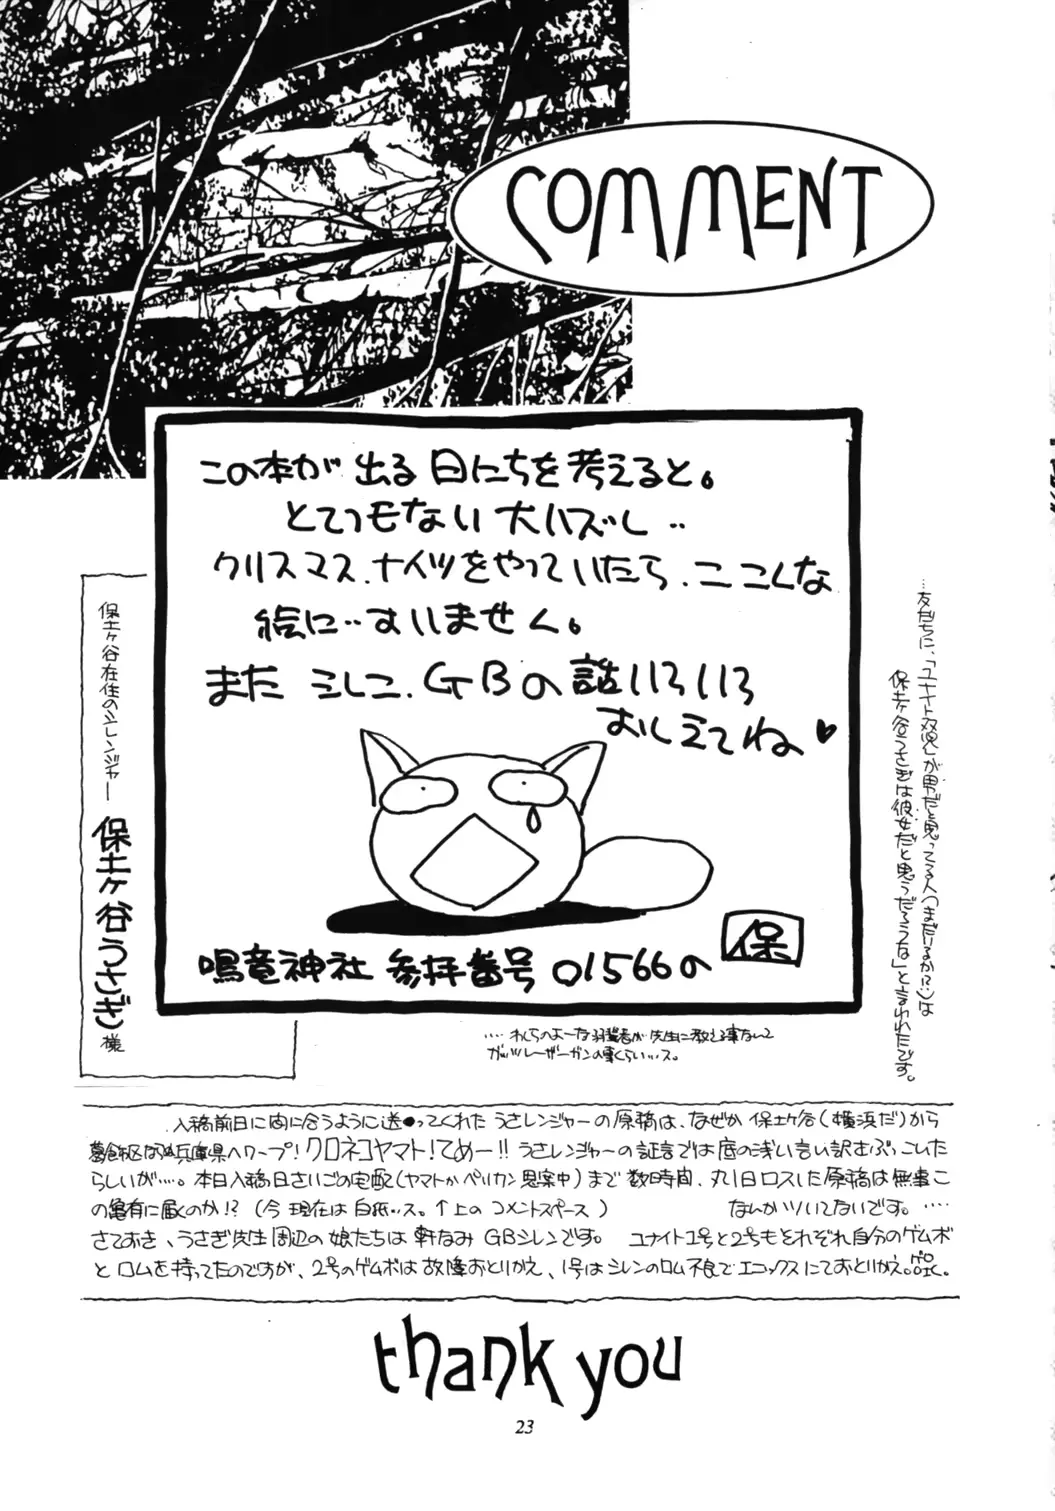 COMMENT
この本が出る日にちを考えると。
とてつもない大ハズレ‥
クリスマス.ナイツをやっていたら、ここんな
絵に‥すいません。
また シレン、GBの話いろいろ
おしえてね♥
鳴竜神社 参拝番号 01566の 保
保土ヶ谷在住のシレンジャー
保土ヶ谷うさぎ様
…友だちに、「ユナイト双児」が男だと思ってる人(まだいるか!?:)は
保土ヶ谷うさぎは彼女だと思うだろうな」と言われたです。
‥‥わしらのよーな羽輩者が先生に教える事ないして
ガッツレーザーガンの事くらい…ス。
入稿前日に間に合うように送●ってくれた うさレンジャーの原稿は、なぜか 保土ヶ谷(横浜だ)から
葛飾区ならぬ兵庫県へワープ!クロネコヤマト!てめー!! うさレンジャーの証言では底の浅い言い訳をぶっこいた
らしいが‥‥。本日入稿日さいごの宅配(ヤマトかペリカン思案中)まで数時間、丸1日ロスした原稿は無事こ
の亀有に届くのか!? (今現在は白紙‥ス。↑上のコメントスペース) なんかツいてないです。‥‥
さておき、うさぎ先生周辺の娘たちは軒なみGBシレンです。 ユナイト1号と2号もそれぞれ自分のゲムボ
とロムを持ってたのですが、2号のゲムボは故障おとりかえ、1号はシレンのロム不良でエニックスにておとりかえ。
thank you
23